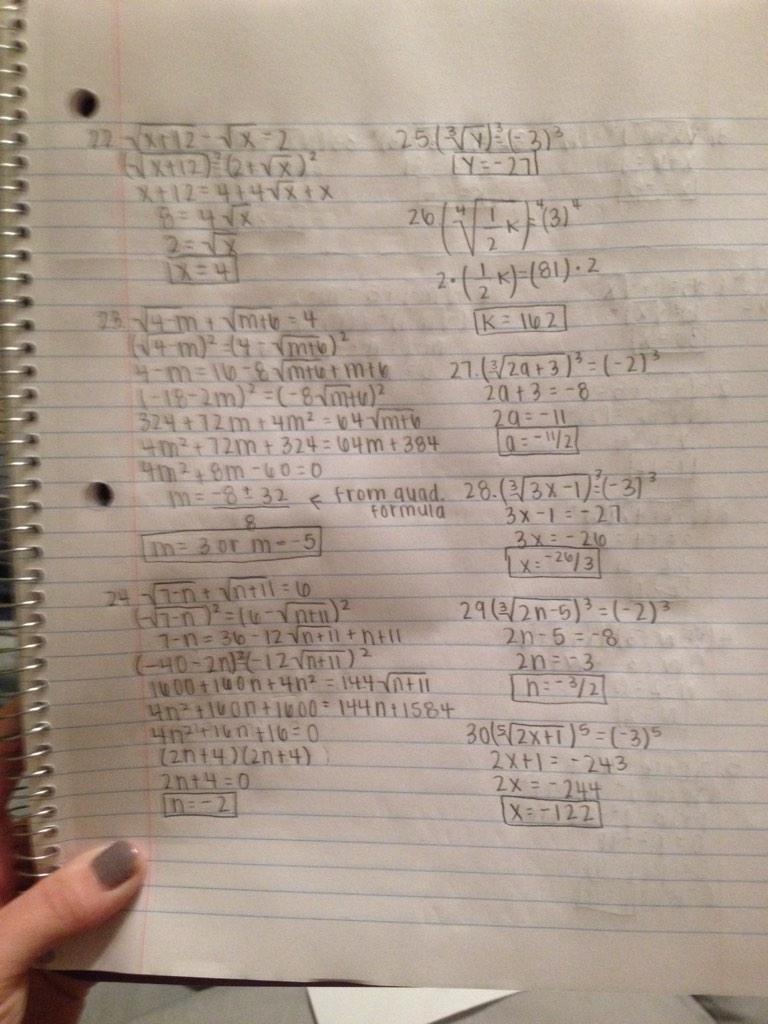 22. √x+12 - √x = 2
(√x+12)²=(2+√x)²
x+12 = 4+4√x+x
8 = 4√x
2 = √x
x = 4
23. √4-m + √m+6 = 4
(√4-m)²=(4-√m+6)²
4-m=16-8√m+6+m+6
(-18-2m)²=(-8√m+6)²
324+72m+4m²=64√m+6
4m²+72m+324=64m+384
4m²+8m-60=0
m = -8 ± 32 / 8 ← from quad. formula
m = 3 or m = -5
24. √7-n + √n+11 = 6
(√7-n)²=(6-√n+11)²
7-n=36-12√n+11+n+11
(-40-2n)²(-12√n+11)²
1600+160n+4n²=144√n+11
4n²+160n+1600=144n+1584
4n²+16n+16=0
(2n+4)(2n+4)
2n+4=0
n=-2
25. (∛y)³=(-3)³
y=-27
26 (∜1/2 k)⁴=(3)⁴
2·(1/2 k)=(81)·2
k = 162
27. (∛2a+3)³=(-2)³
2a+3=-8
2a=-11
a=-11/2
28. (∛3x-1)³=(-3)³
3x-1=-27
3x=-26
x=-26/3
29 (∛2n-5)³=(-2)³
2n-5=-8
2n=-3
n=-3/2
30 (⁵√2x+1)⁵=(-3)⁵
2x+1=-243
2x=-244
x=-122